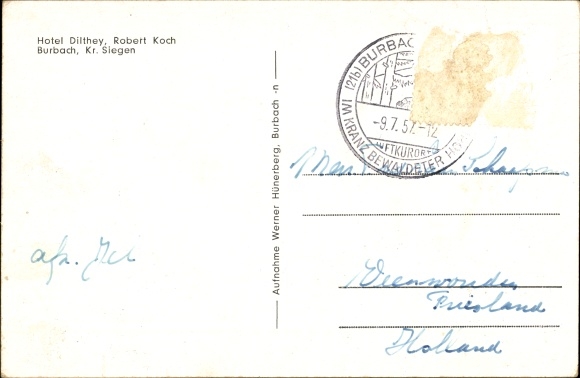 Hotel Dilthey, Robert Koch
Burbach, Kr. Siegen
Aufnahme Werner Hünerberg, Burbach -n
(21b) BURBAC
-9.7.57.-12
LUFTKURORT
IM KRANZ BEWALDETER HÖ
afz.
Veenwouden
Friesland
Holland